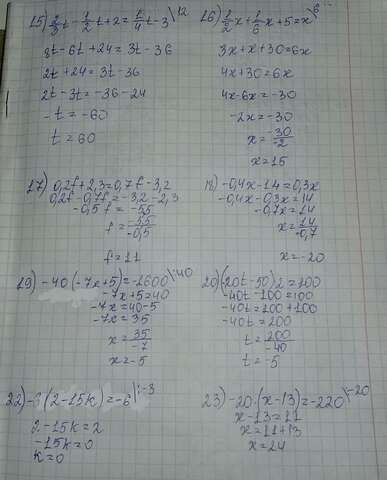 15) 2/3t - 1/2t + 2 = 1/4t - 3 |·12
8t - 6t + 24 = 3t - 36
2t + 24 = 3t - 36
2t - 3t = -36 - 24
-t = -60
t = 60
16) 1/2x + 1/6x + 5 = x |·6
3x + x + 30 = 6x
4x + 30 = 6x
4x - 6x = -30
-2x = -30
x = -30/-2
x = 15
17) 0,2f + 2,3 = 0,7f - 3,2
0,2f - 0,7f = -3,2 - 2,3
-0,5f = -5,5
f = -5,5/-0,5
f = 11
18) -0,4x - 14 = 0,3x
-0,4x - 0,3x = 14
-0,7x = 14
x = 14/-0,7
x = -20
19) -40·(-7x+5) = -1600 |:40
-7x + 5 = 40
-7x = 40 - 5
-7x = 35
x = 35/-7
x = -5
20) (20t - 50)·2 = 100
-40t - 100 = 100
-40t = 100 + 100
-40t = 200
t = 200/-40
t = -5
22) -3(2 - 15k) = -6 |:-3
2 - 15k = 2
-15k = 0
k = 0
23) -20·(x - 13) = -220 |:-20
x - 13 = 11
x = 11 + 13
x = 24